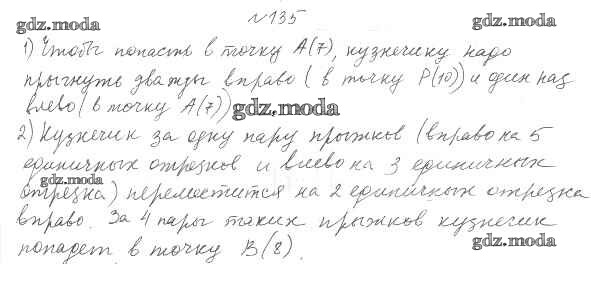 №135
gdz.moda
gdz.moda
1) Чтобы попасть в точку А(7), кузнечику надо
прыгнуть дважды вправо (в точку Р(10)) и один раз
влево (в точку А(7))
gdz.moda
2) Кузнечик за одну пару прыжков (вправо на 5
единичных отрезков и влево на 3 единичных
gdz.moda
отрезка) переместится на 2 единичных отрезка
вправо. За 4 пары таких прыжков кузнечик
gdz.moda
попадет в точку В(8).
gdz.moda